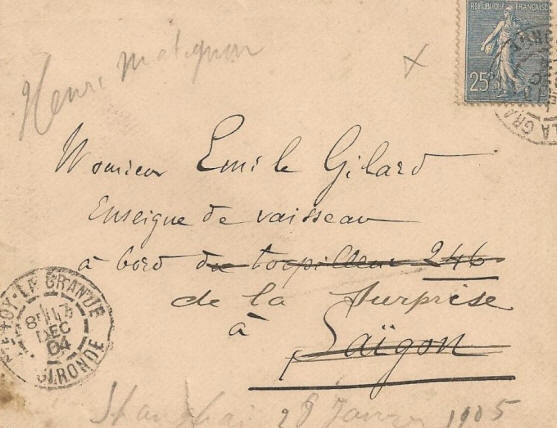 RÉPUBLIQUE FRANÇAISE
25
LA GRA
Henri Matignon
Monsieur Emile Gilard
Enseigne de vaisseau
à bord du torpilleur 246
de la Surprise
à Saïgon
STE FOY-LA GRANDE
DEC
04
GIRONDE
Shanghai 28 Janvier 1905